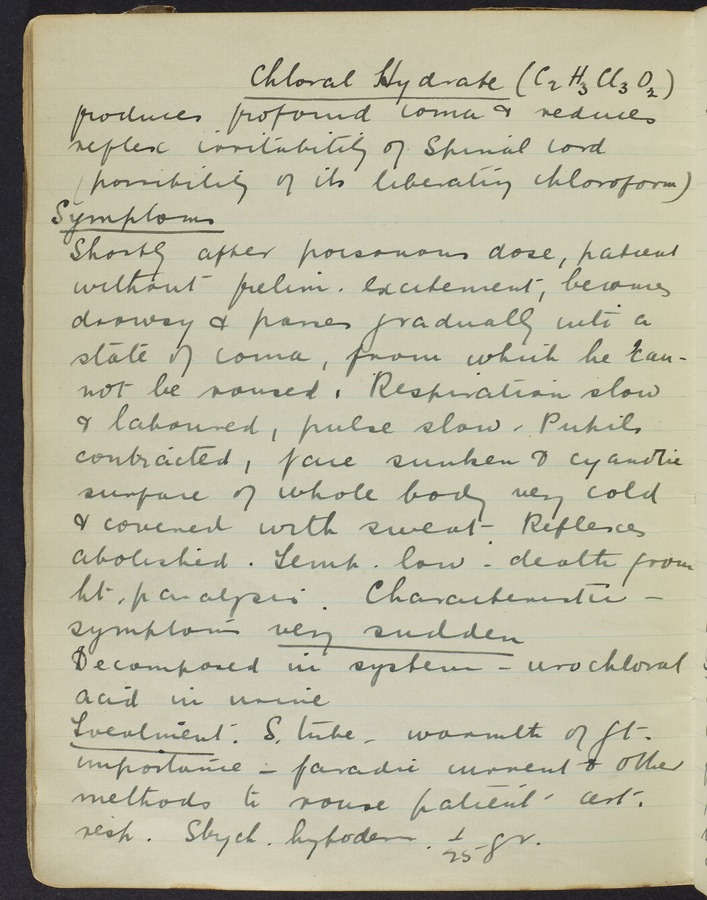 Chloral Hydrate (C2 H3 Cl3 O2)
produces profound coma & reduces
reflex irritability of Spinal cord
(possibility of its liberating chloroform)
Symptoms
Shortly after poisonous dose, patient
without prelim. excitement, becomes
drowsy & passes gradually into a
state of coma, from which he can-
not be roused. Respiration slow
& laboured, pulse slow. Pupils
contracted, face sunken & cyanotic
surface of whole body very cold
& covered with sweat - Reflexes
abolished. Temp. low - death from
ht. paralysis. Characteristic -
symptoms very sudden
Decomposed in system - urochloral
acid in urine
Treatment. S. tube - warmth of gt.
importance - faradic current & other
methods to rouse patient - art.
resp. Strych. hypoderm. 1/25 gr.